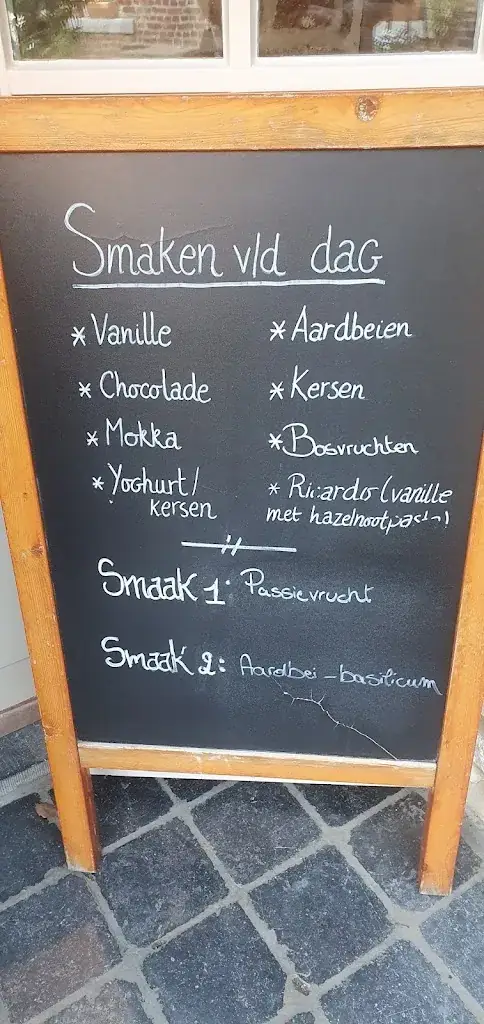 Smaken v/d dag
* Vanille
* Chocolade
* Mokka
* Yoghurt/
kersen
* Aardbeien
* Kersen
* Bosvruchten
* Ricardo (vanille
met hazelnootpasta)
Smaak 1: Passievrucht
Smaak 2: Aardbei-basilicum